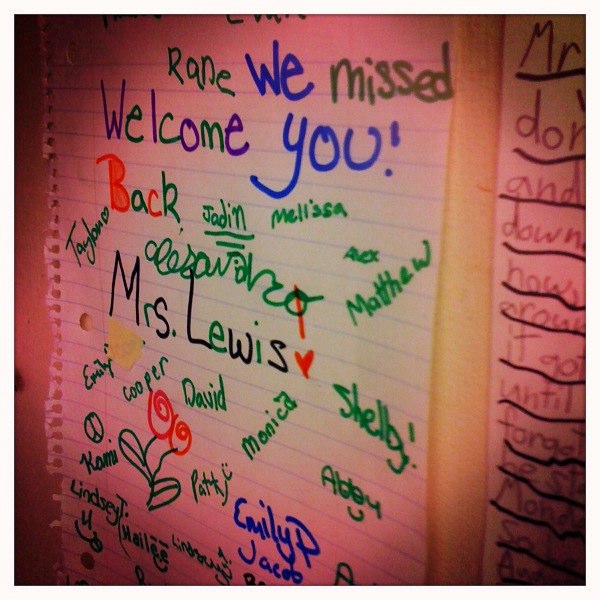 Rane We missed
Welcome You!
Back
Jadin
Melissa
Taylor
Alex
Matthew
Mrs. Lewis
Emily
Cooper
David
Monica
Shelby!
Kami
Patty
Abby
Lindsey T.
Emily P
Hailee
Lindsay
Jacob
Mr
don'
and
down
how
it got
until
forget
Mond